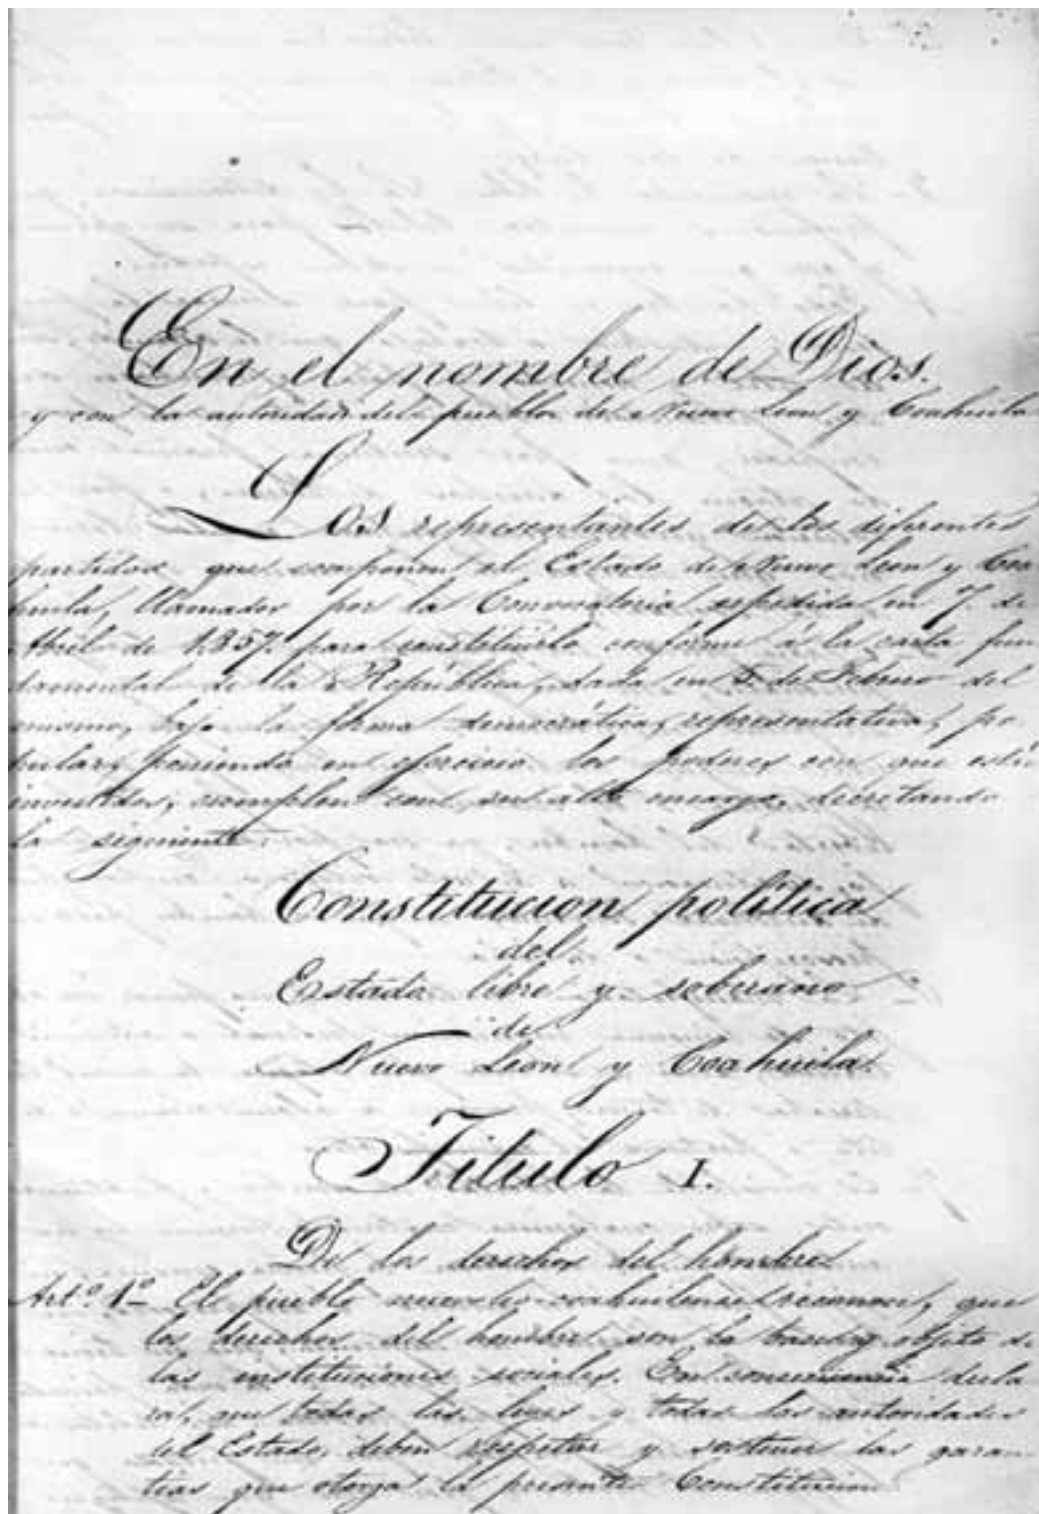 En el nombre de Dios.
y con la autoridad del pueblo de Nuevo Leon y Coahuila
Los representantes de los diferentes
partidos que componen el Estado de Nuevo Leon y Coa
huila, llamados por la Convocatoria espedida en 7. de
Abril de 1857. para constituirlo conforme á la carta fun
damental de la República, dada en 5 de Febrero del
mismo, bajo la forma democrática, representativa, po
pular, poniendo en ejercicio los poderes con que están
investidos, cumplen con su alto encargo, decretando
la siguiente:
Constitucion política
del
Estado libre y soberano
de
Nuevo Leon y Coahuila.
Titulo I.
De los derechos del hombre
Art.º 1º El pueblo nuevoleo-coahuilense reconoce, que
los derechos del hombre son la base y objeto de
las instituciones sociales. En consecuencia decla
ra, que todas las leyes y todas las autoridades
del Estado, deben respetar y sostener las garan
tias que otorga la presente Constitucion